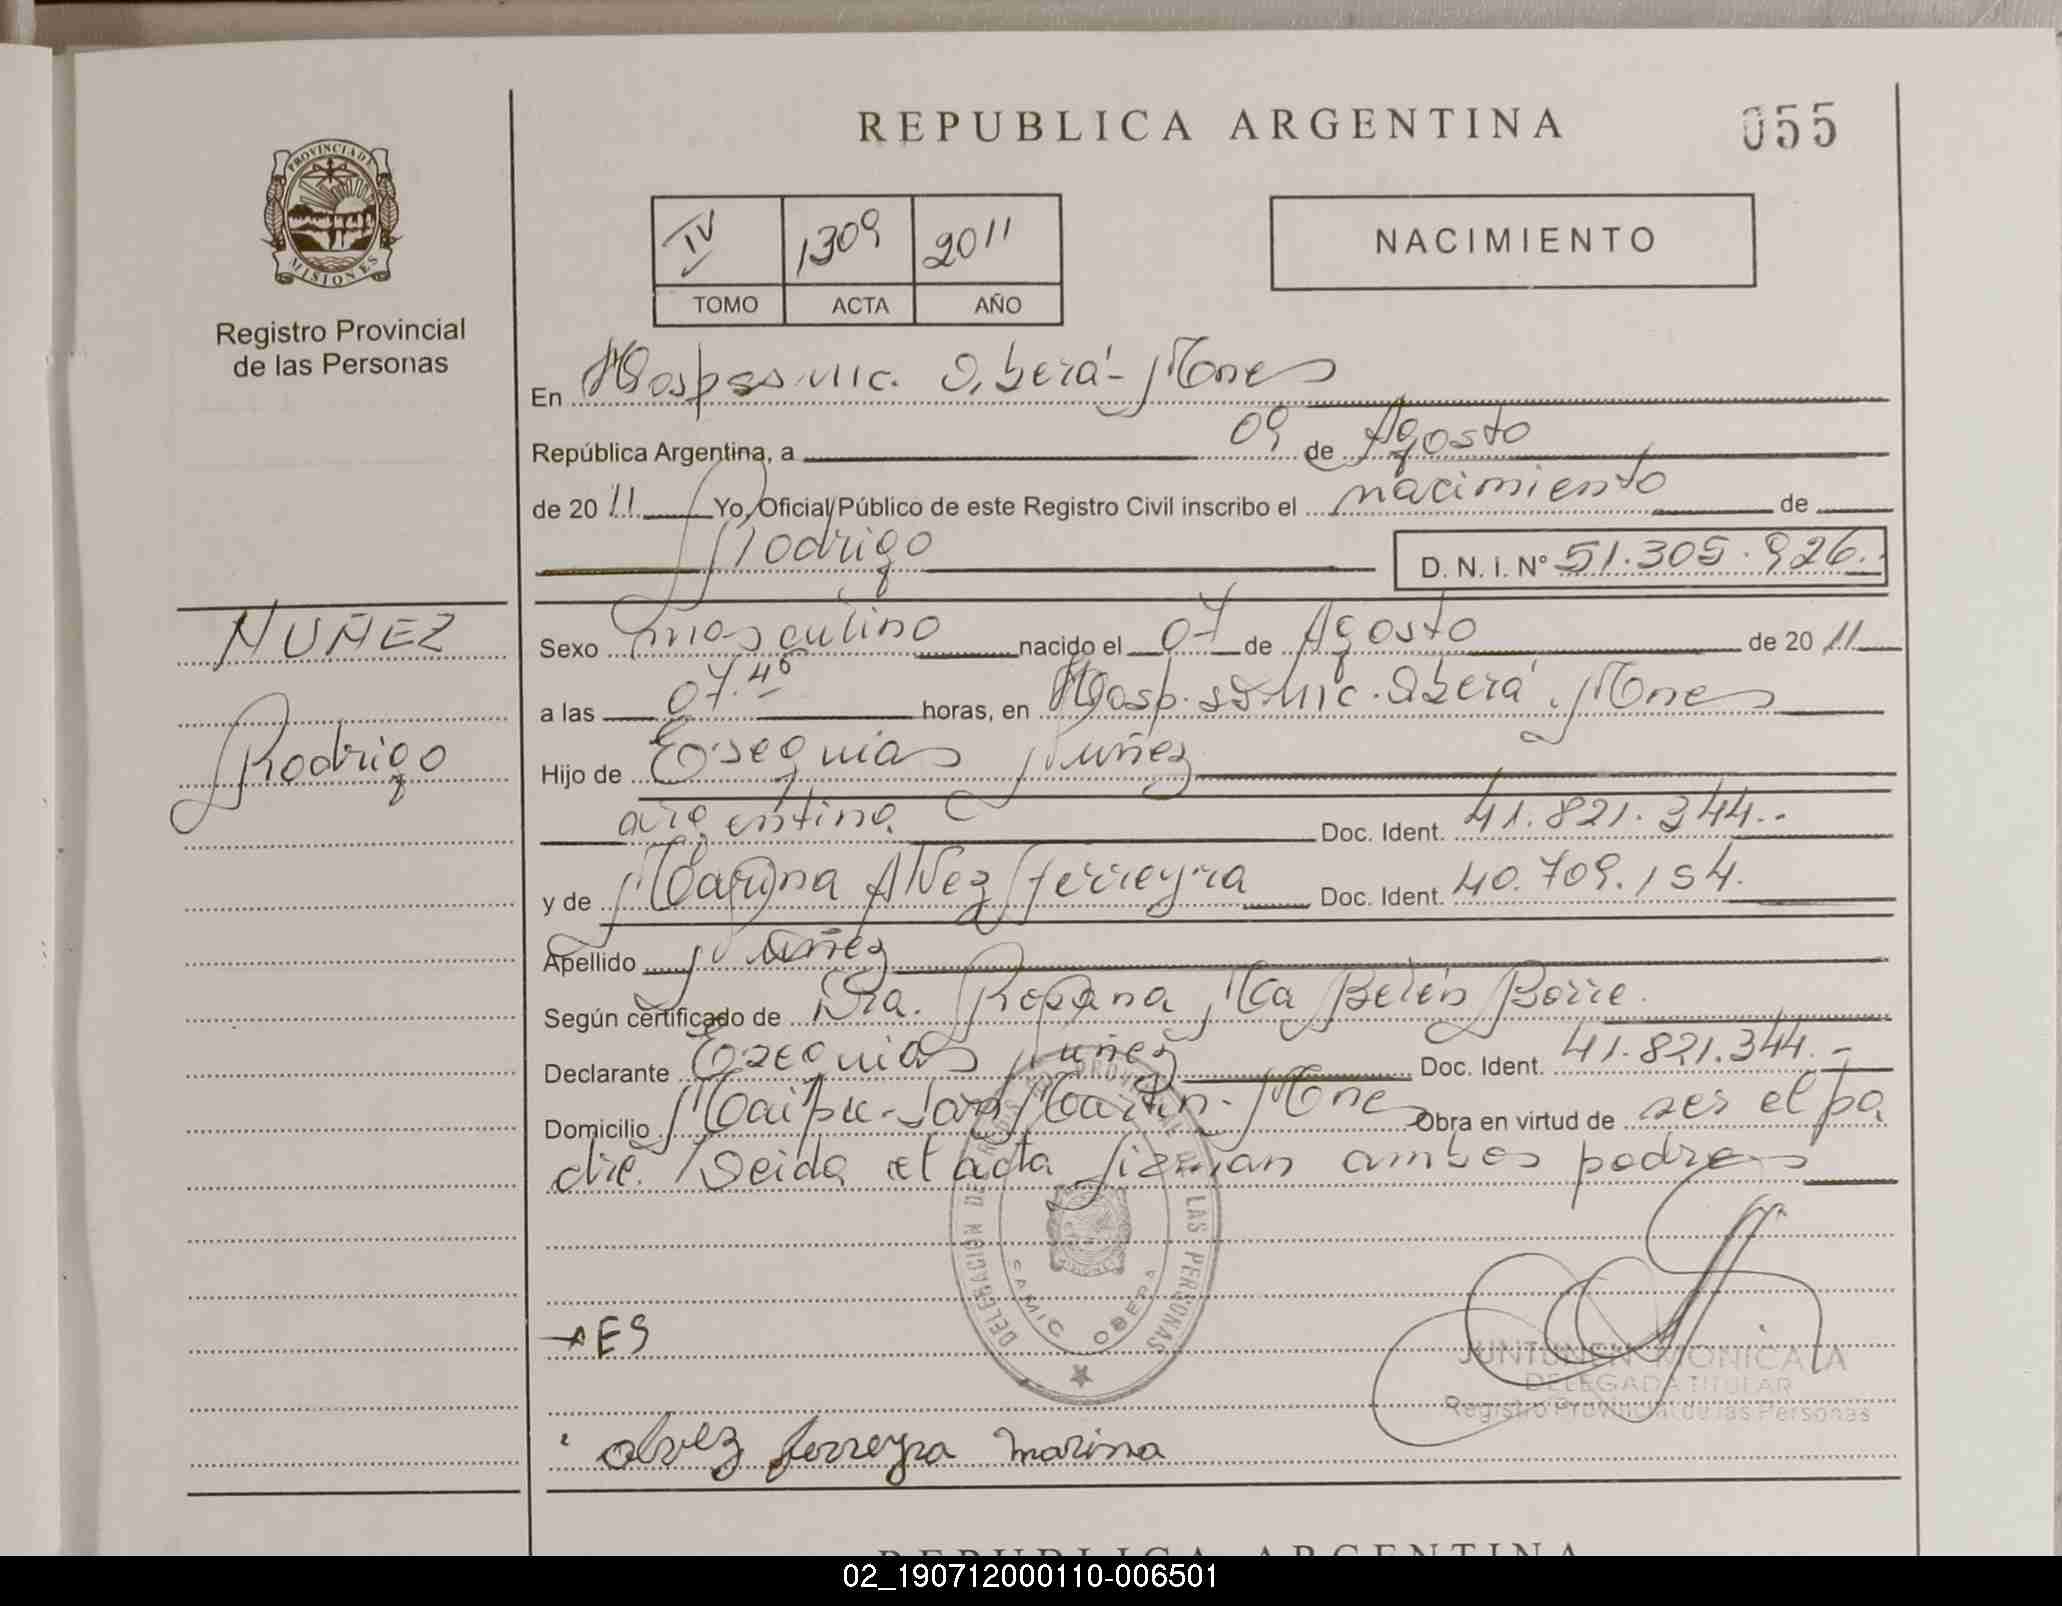 REPUBLICA ARGENTINA
055
PROVINCIA DE
MISIONES
Registro Provincial
de las Personas
IV 1309 2011
TOMO ACTA AÑO
NACIMIENTO
En Hosp. ss. mic. Oberá - Mnes
República Argentina, a 09 de Agosto
de 20 11 Yo, Oficial Público de este Registro Civil inscribo el nacimiento de
Rodrigo D. N. I. Nº 51.305.926.
NUÑEZ
Rodrigo
Sexo masculino nacido el 07 de Agosto de 20 11
a las 07.45 horas, en Hosp. ss. mic. Oberá. Mnes
Hijo de Esequias Nuñez
argentino Doc. Ident. 41.821.344.-
y de Marina Alvez Ferreyra Doc. Ident. 40.709.154.
Apellido Nuñez
Según certificado de Dra. Rosana Ma Belén Borre.
Declarante Esequias Nuñez Doc. Ident. 41.821.344.-
Domicilio Maipu - San Martin - Mnes Obra en virtud de ser el pa
dre. Leida el acta firman ambos padres
DELEGACION DE REGISTRO PROVINCIAL DE LAS PERSONAS
CAMIC OBERA
ES
JUNTUNEN MONICA LA
DELEGADA TITULAR
Registro Provincial de las Personas
alvez ferreyra marina
REPUBLICA ARGENTINA
02_190712000110-006501